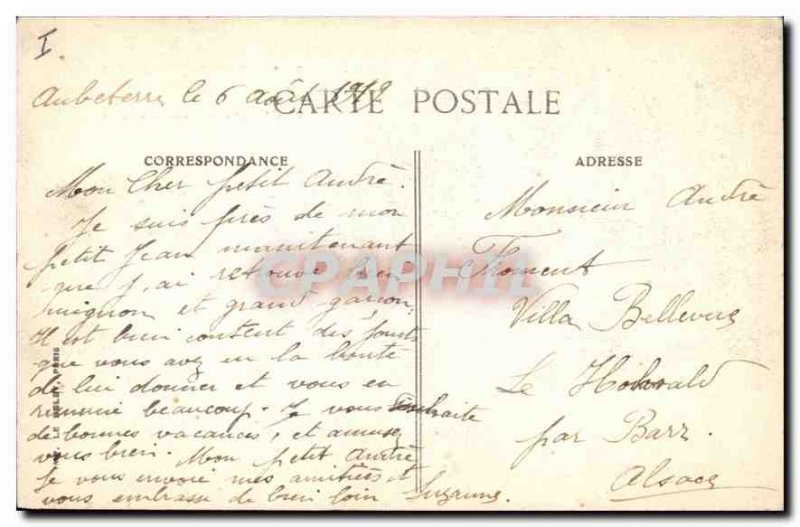 I
Aubeterre le 6 août 1919
CARTE POSTALE
CORRESPONDANCE
Mon Cher petit André.
Je suis près de mon
petit Jean maintenant
que j'ai retrouvé bien
mignon et grand garçon.
Il est bien content des jouets
que vous avez eu la bonté
de lui donner et vous en
remercie beaucoup. Je vous souhaite
de bonnes vacances, et amusez
vous bien. Mon petit André
Je vous envoie mes amitiés et
vous embrasse de bien loin Suzanne.
ADRESSE
Monsieur André
Froment
Villa Bellevue
Le Hohwald
par Barr.
Alsace
CPAPHIL
PARIS